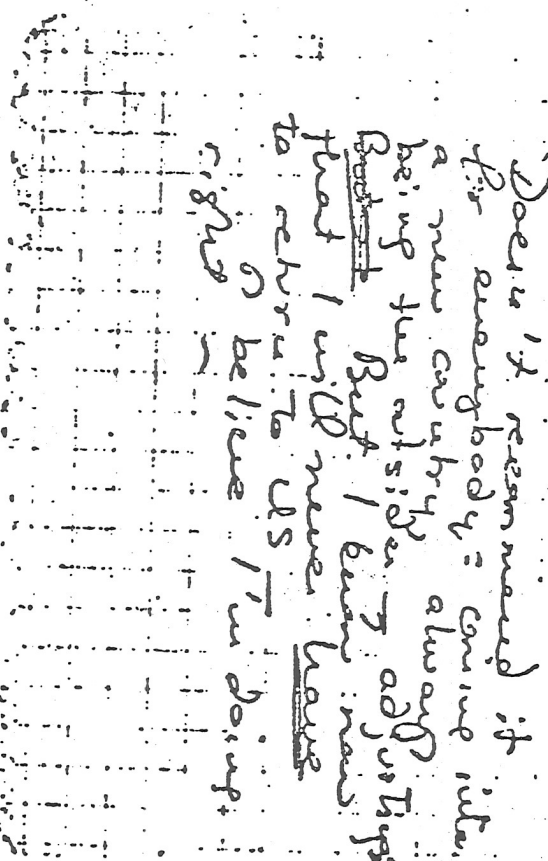 Doesn't recommend it
for anybody = coming into
a new country always
being the outsider – adjusting
But I know now
that I will never have
to return to US
right believe I'm doing.